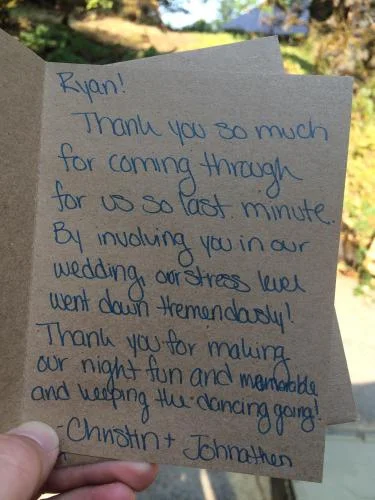 Ryan!
Thank you so much
for coming through
for us so last minute.
By involving you in our
wedding, our stress level
went down tremendously!
Thank you for making
our night fun and memorable
and keeping the dancing going!
-Christin + Johnathen